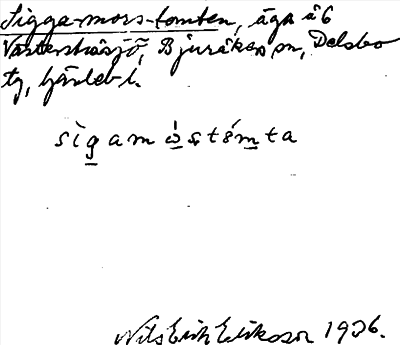 Sigga-mors-tomten, äga å 6
Västerstråsjö, Bjuråkers sn, Delsbo
tg, Gävleb. l.
sìgamòstómta
Nils Erik Eriksson 1936.